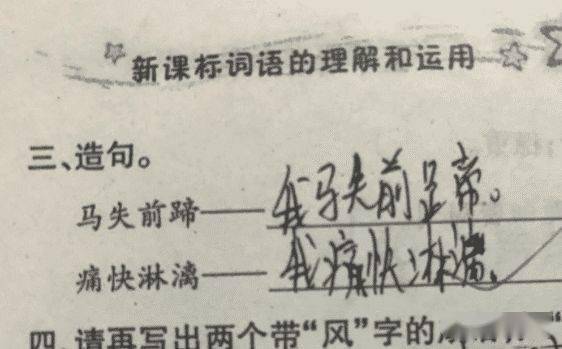 新课标词语的理解和运用
三、造句。
马失前蹄——我马失前蹄。
痛快淋漓——我痛快淋漓。
四、请再写出两个带“风”字的